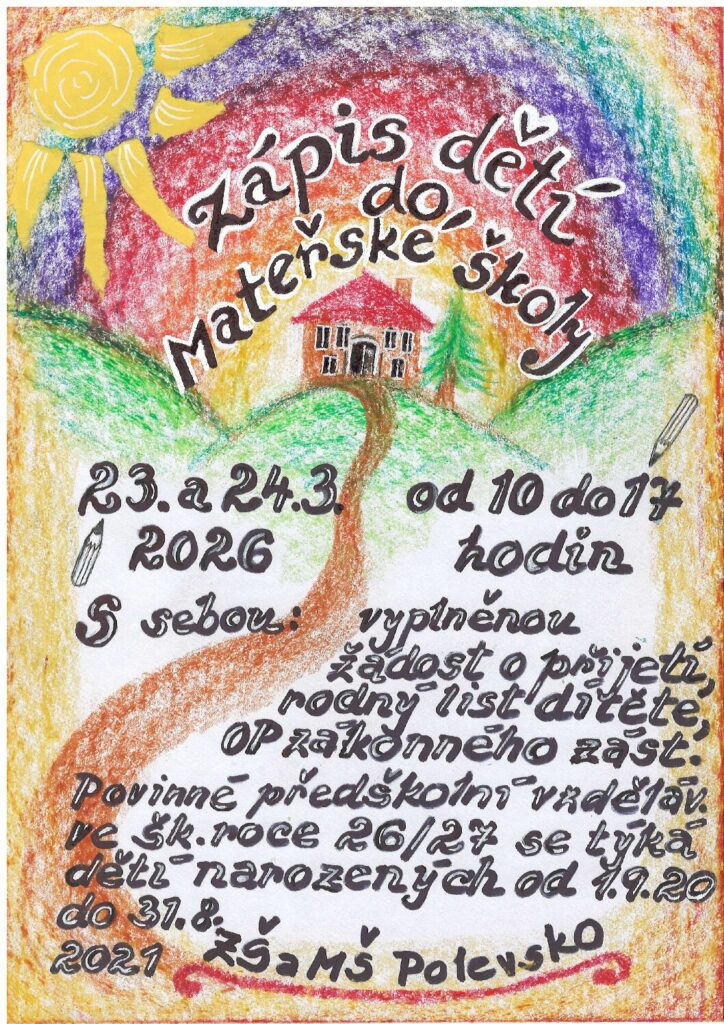 Zápis dětí
do
Mateřské školy
23. a 24.3. od 10 do 17
2026 hodin
S sebou: vyplněnou
žádost o přijetí,
rodný list dítěte,
OP zákonného zást.
Povinné předškolní vzděláv.
ve šk. roce 26/27 se týká
dětí narozených od 1.9.20
do 31.8.
2021 ZŠ a MŠ Polevsko